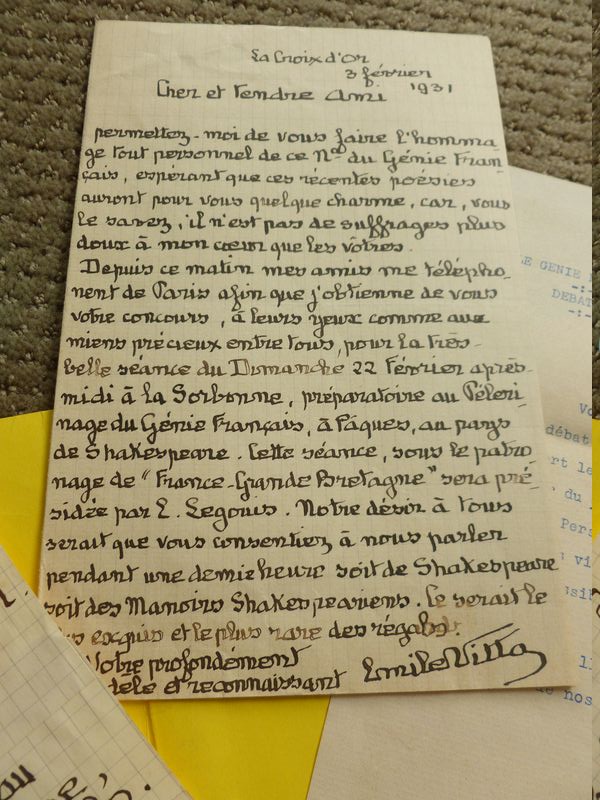 La Croix d'Or
3 février
1931
Cher et tendre Ami
permettez-moi de vous faire l'homma-
ge tout personnel de ce No du Génie Fran-
çais, espérant que ces récentes poésies
auront pour vous quelque charme, car, vous
le savez, il n'est pas de suffrages plus
doux à mon cœur que les vôtres.
Depuis ce matin mes amis me télépho-
nent de Paris afin que j'obtienne de vous
votre concours, à leurs yeux comme aux
miens précieux entre tous, pour la très-
belle séance du Dimanche 22 Février après-
midi à la Sorbonne, préparatoire au Pèleri-
nage du Génie Français, à Pâques, au pays
de Shakespeare. Cette séance, sous le patro
nage de "France-Grande Bretagne" sera pré-
sidée par E. Legouis. Notre désir à tous
serait que vous consentiez à nous parler
pendant une demie heure soit de Shakespeare
soit des Manoirs Shakespeariens. Ce serait le
exquis et le plus rare des régals.
Votre profondément
dèle et reconnaissant Emile Villa
E GENIE
DEBAT
Vo
débat
rt le
du
Pers
vi
ssit
ll
de nos
au